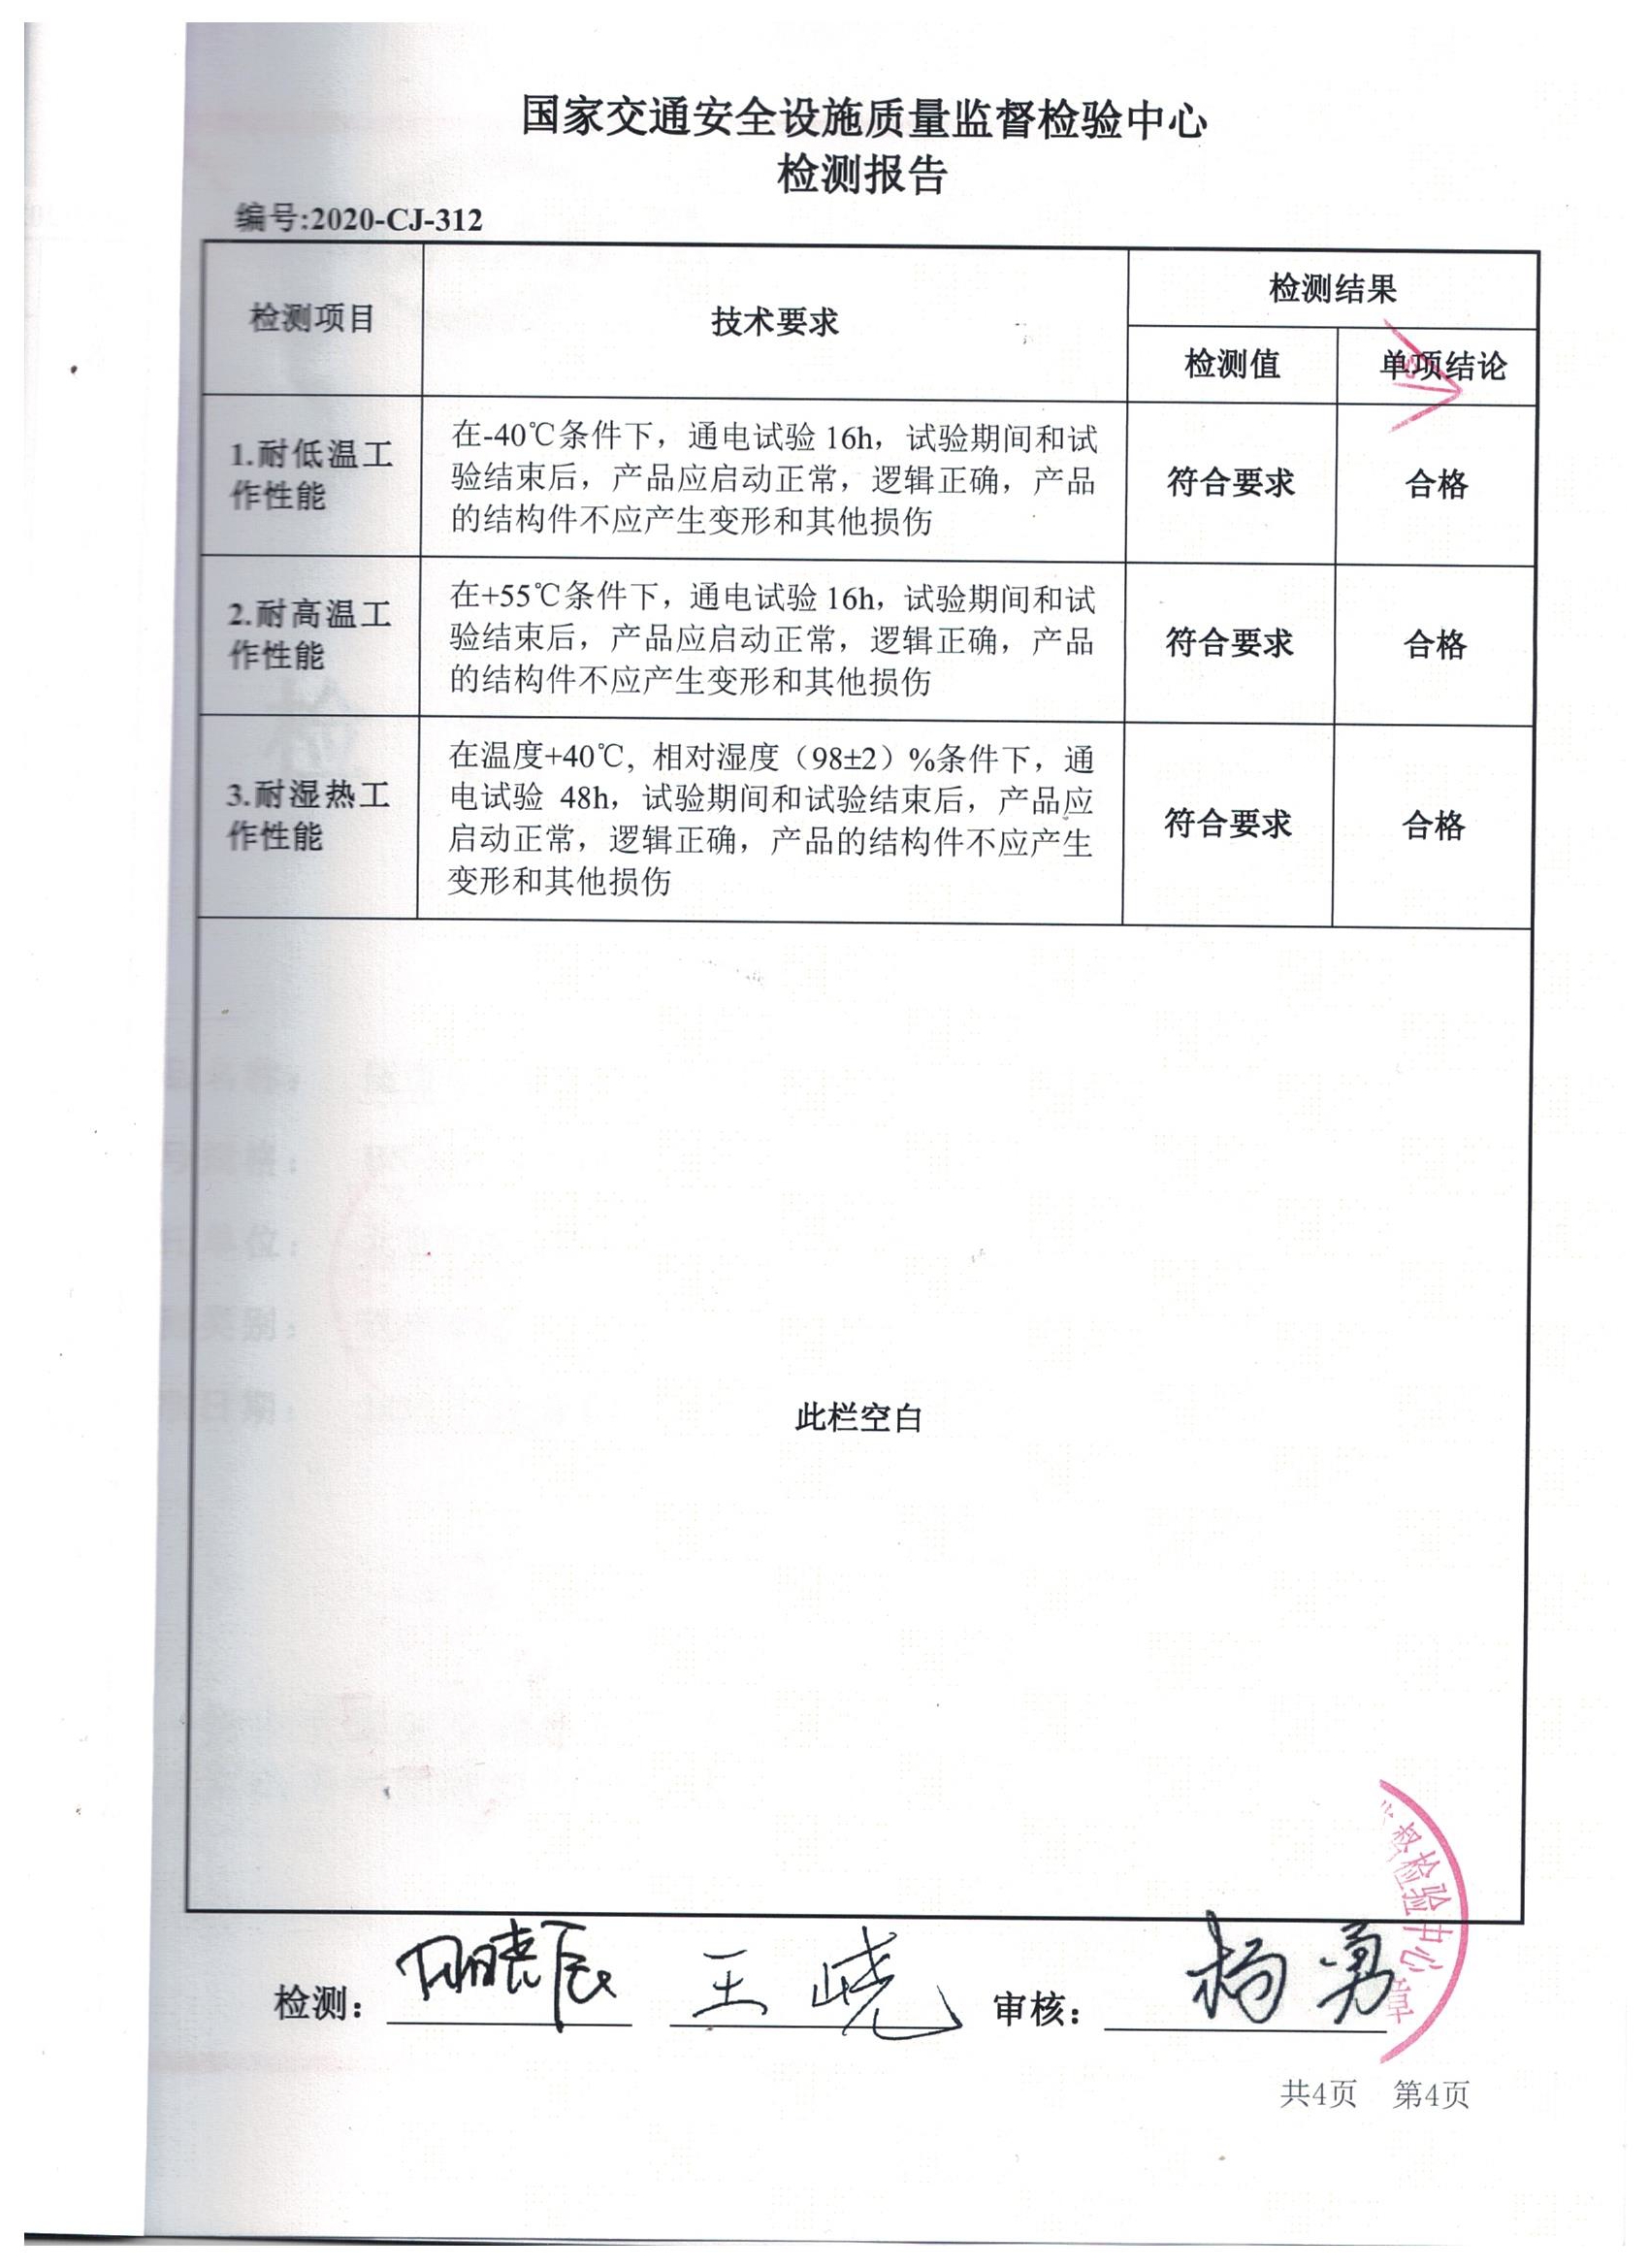 国家交通安全设施质量监督检验中心
检测报告
编号:2020-CJ-312
检测项目
技术要求
检测结果
检测值
单项结论
1.耐低温工
作性能
在-40℃条件下，通电试验 16h，试验期间和试
验结束后，产品应启动正常，逻辑正确，产品
的结构件不应产生变形和其他损伤
符合要求
合格
2.耐高温工
作性能
在+55℃条件下，通电试验 16h，试验期间和试
验结束后，产品应启动正常，逻辑正确，产品
的结构件不应产生变形和其他损伤
符合要求
合格
3.耐湿热工
作性能
在温度+40℃, 相对湿度（98±2）%条件下，通
电试验 48h，试验期间和试验结束后，产品应
启动正常，逻辑正确，产品的结构件不应产生
变形和其他损伤
符合要求
合格
此栏空白
督检验中心
章
检测：
王 晓
审核：
杨勇
共4页 第4页